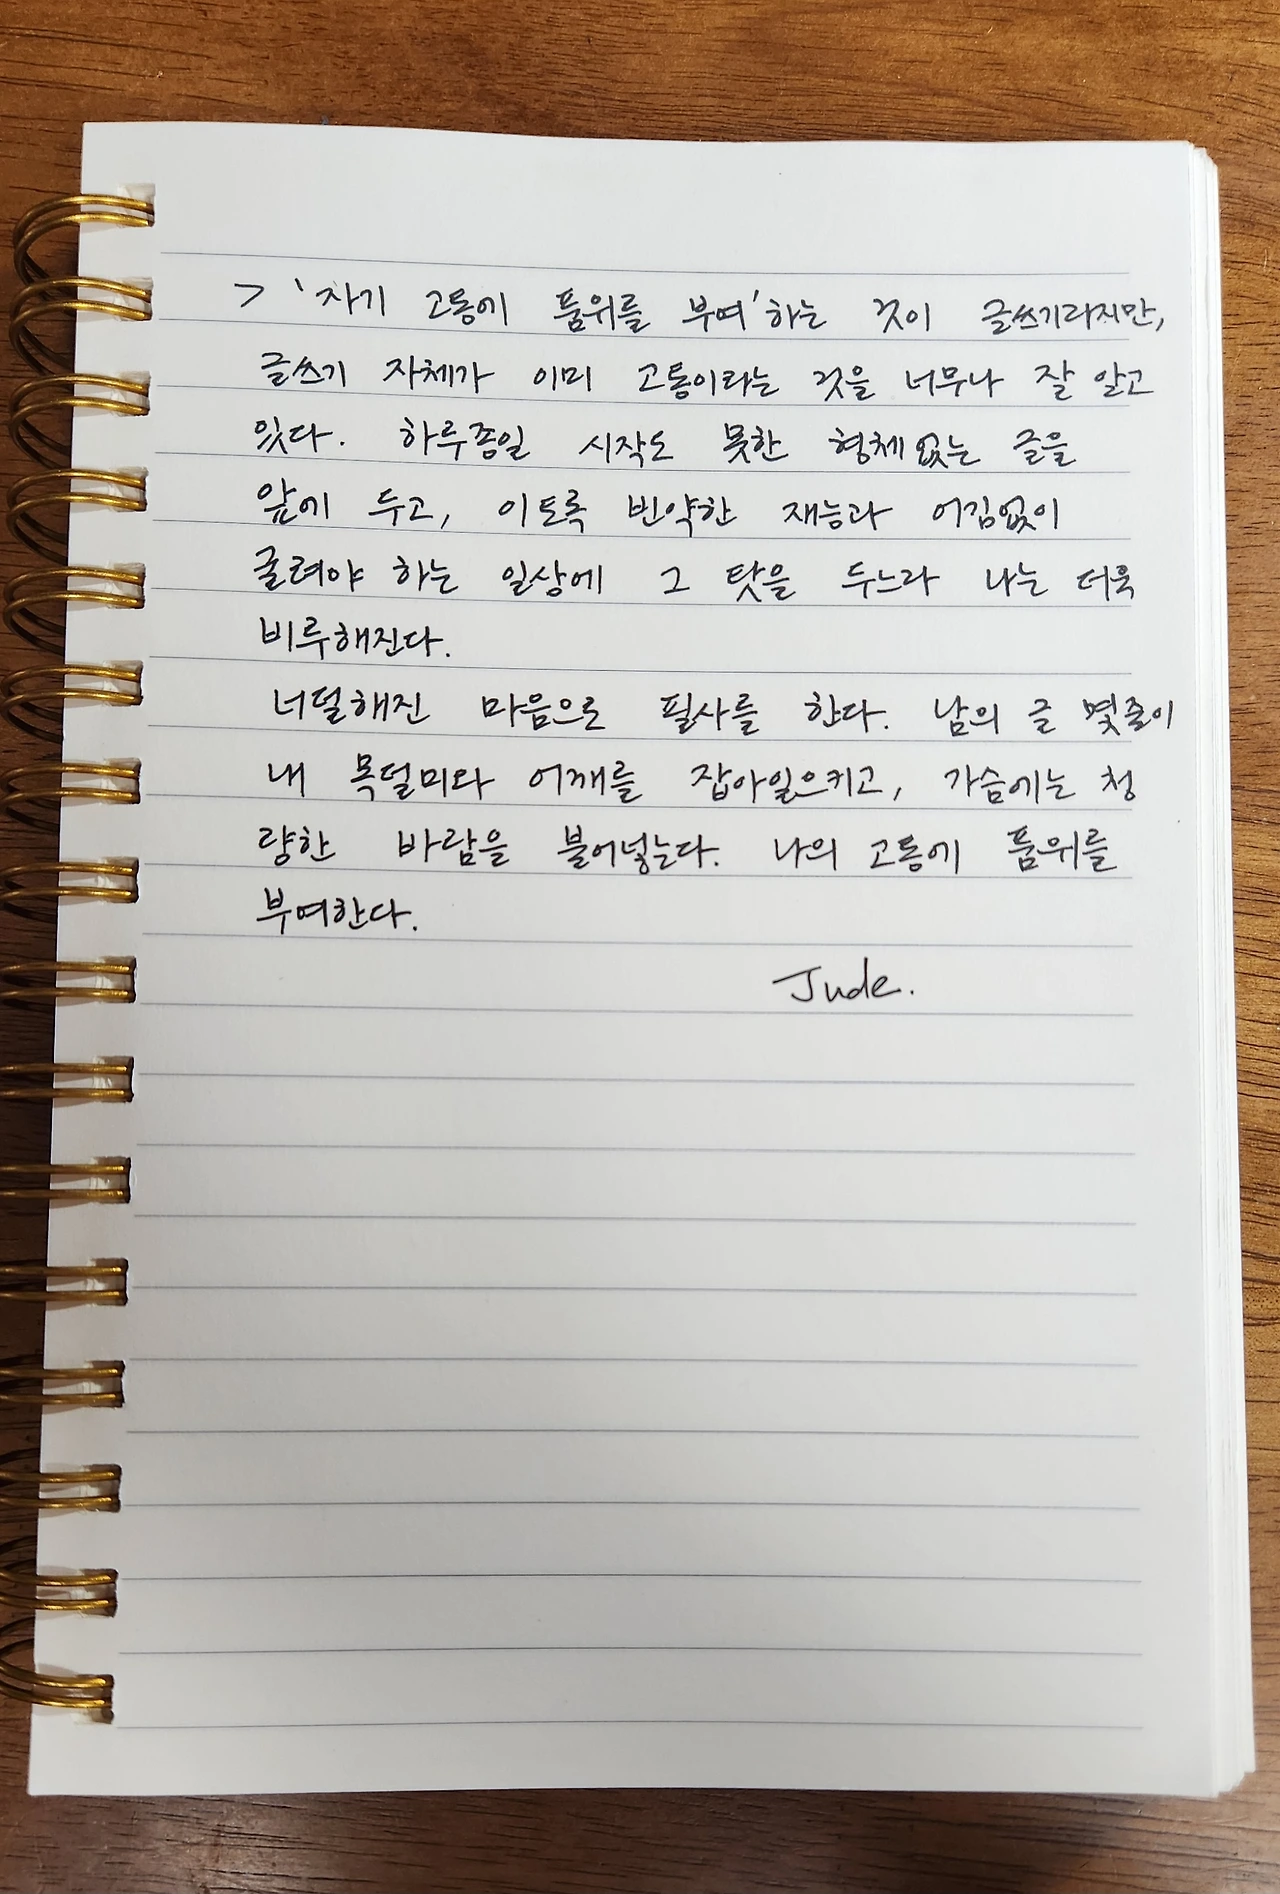 > '자기 고통에 품위를 부여'하는 것이 글쓰기라지만,
글쓰기 자체가 이미 고통이라는 것을 너무나 잘 알고
있다. 하루종일 시작도 못한 형체없는 글을
앞에 두고, 이토록 빈약한 재능과 어김없이
굴려야 하는 일상에 그 탓을 두느라 나는 더욱
비루해진다.
너덜해진 마음으로 필사를 한다. 남의 글 몇줄이
내 목덜미와 어깨를 잡아일으키고, 가슴에는 청
량한 바람을 불어넣는다. 나의 고통에 품위를
부여한다.
Jude.